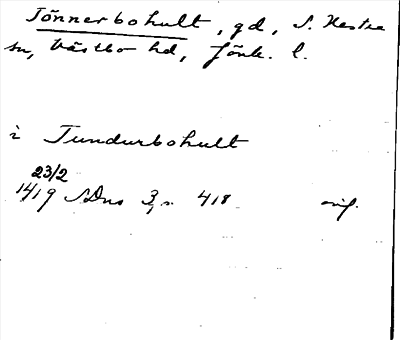 Tönnerbohult, gd, S. Hestra
sn, Västbo hd, Jönk. l.
i Tundurbohult
23/2
1419 SDns 3, s. 418 orig.